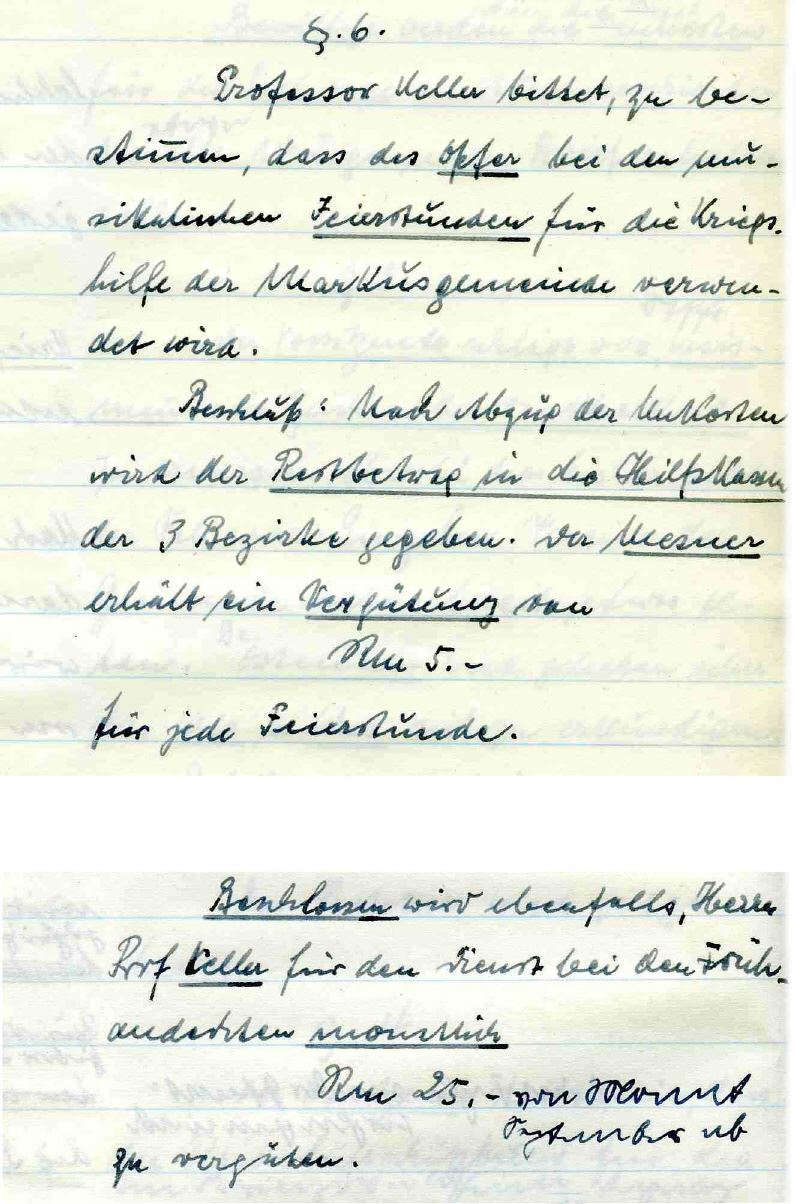 §. 6.
Professor Keller bittet, zu be-
stimmen, dass das Opfer bei den mu-
sikalischen Feierstunden für die Kriegs-
hilfe der Markusgemeinde verwen-
det wird.
Beschluß: Nach Abzug der Unkosten
wird der Restbetrag in die Hilfskassen
der 3 Bezirke gegeben. Der Mesner
erhält ein Vergütung von
RM 5.-
für jede Feierstunde.
Beschlossen wird ebenfalls, Herrn
Prof Keller für den Dienst bei den Früh-
andachten monatlich
RM 25.- von Monat
September ab
zu vergüten.